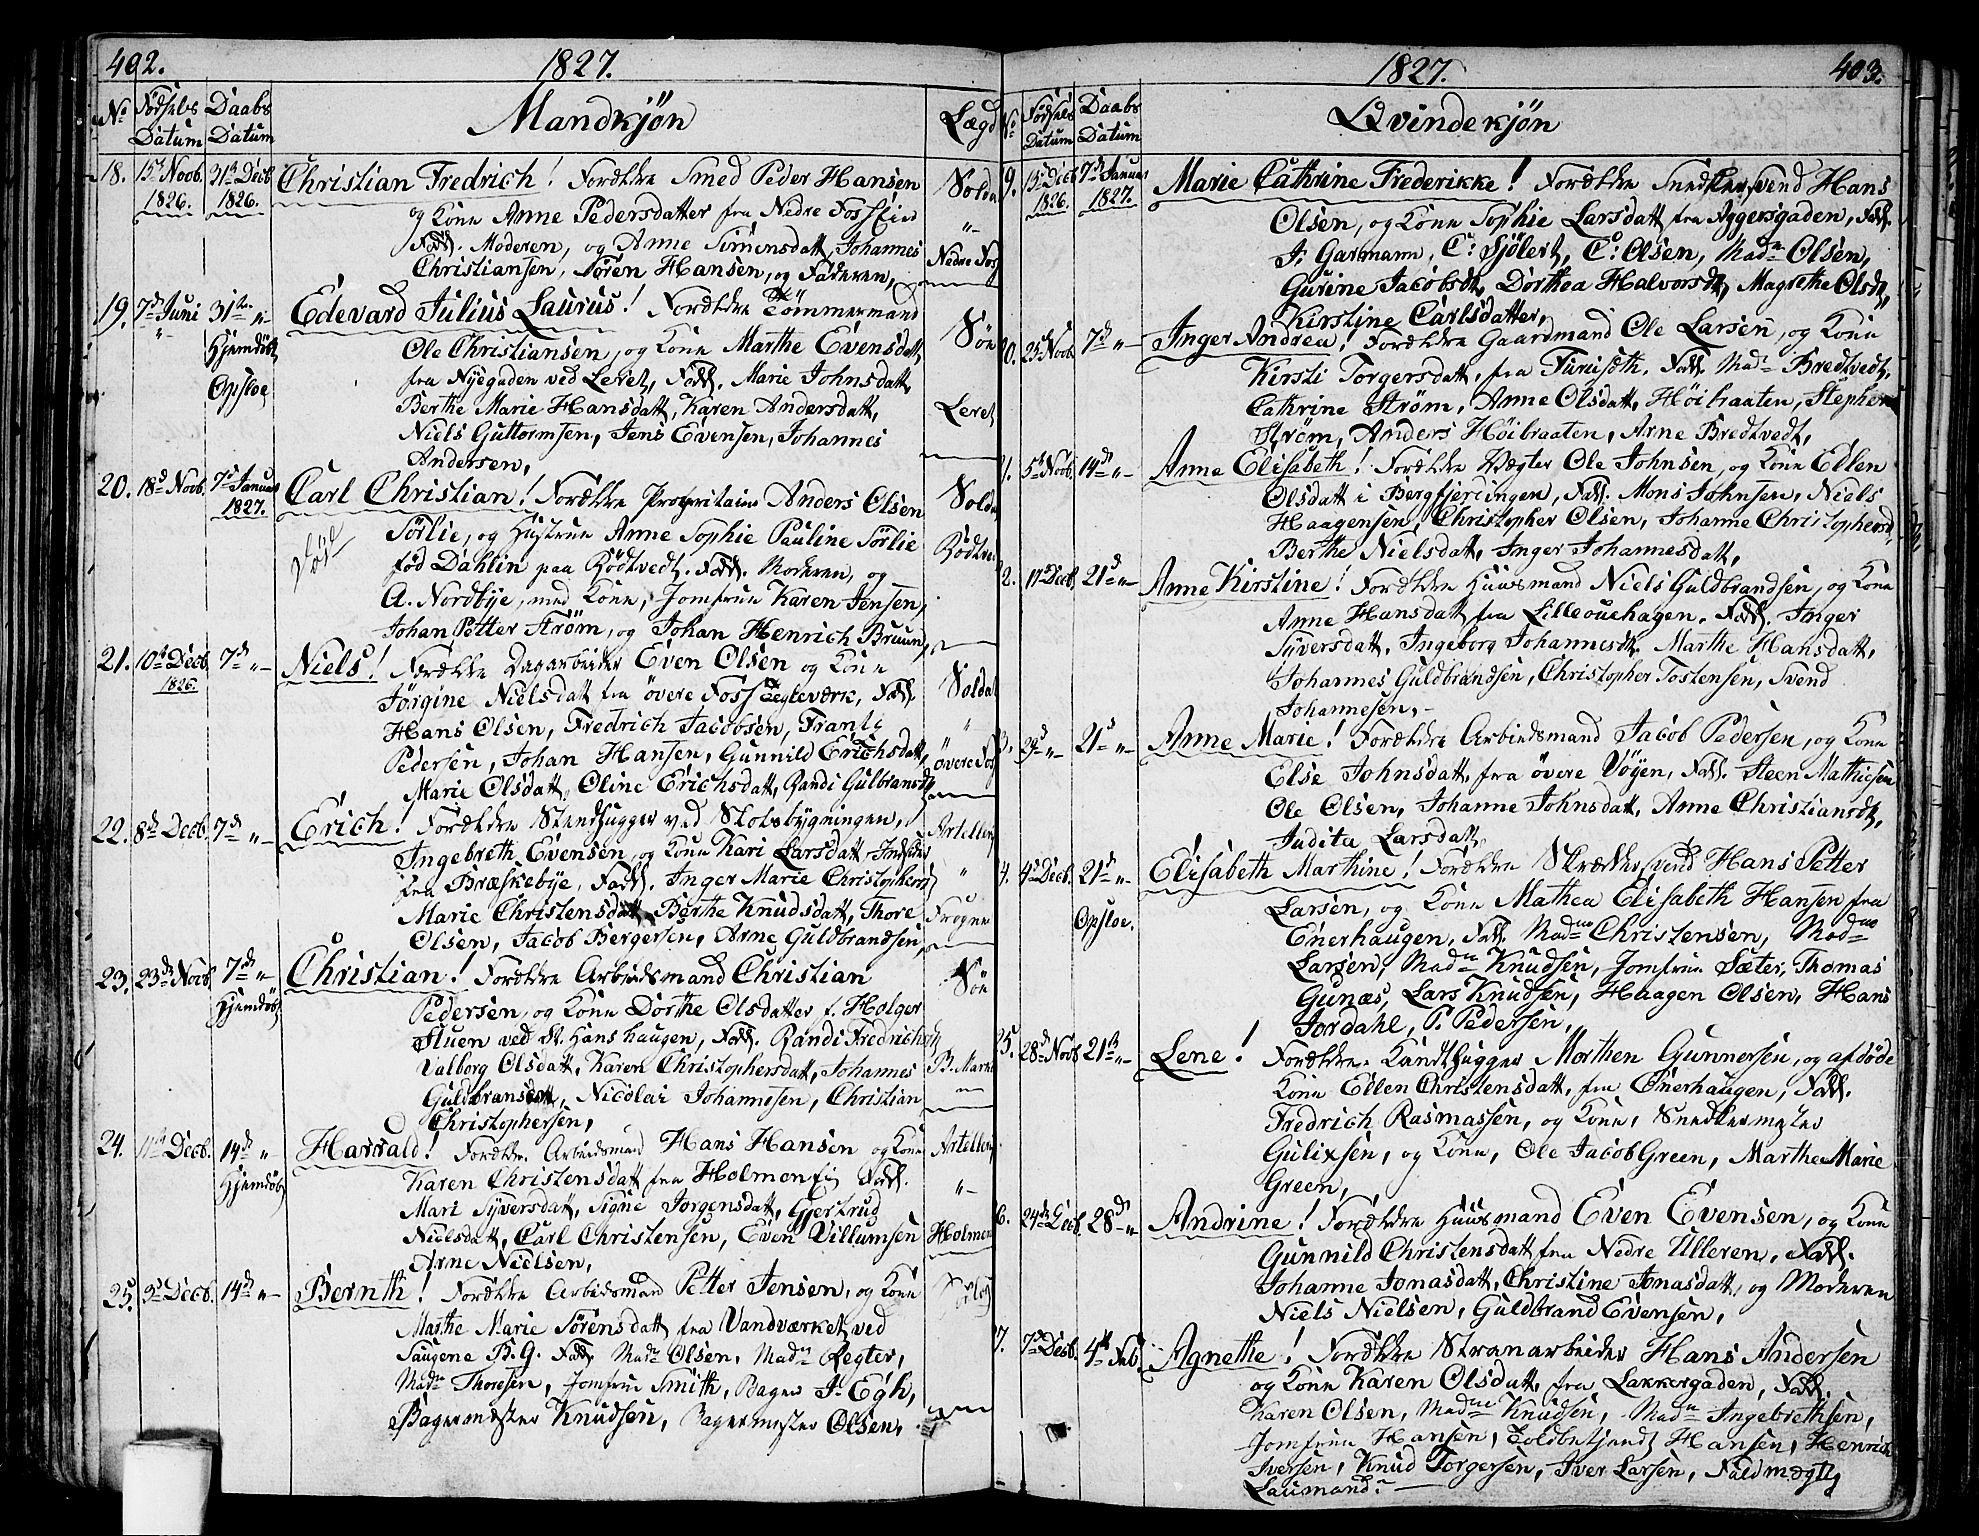 402.
1827.
No Fødsels Datum Daabs Datum Mandkjön Lægd
18. 15d Novb. 1826. 31te Decb 1826. Christian Fredrich! Forældre Smed Peder Hansen Solda
og Kone Anne Pedersdatter fra Nedre Foss Eied "-
Fadd. Moderen, og Anne Simensdatt, Johannes Nedre Fos
Christiansen, Sören Hansen, og Faderen,
19. 7de Juni "- 31te "- Hjemdöbt Opsloe Edevard Julius Laurus! Forældre Tömmermand Söe
Ole Christiansen, og Kone Marthe Evensdatt,
fra Nyegaden ved Leret, Fadd. Marie Johnsdatt,
Berthe Marie Hansdatt, Karen Andersdatt, Leret
Niels Guttormsen, Jens Evensen, Johannes
Andersen,
20. 18d Novb. 7d Januar 1827. Carl Christian! Forældre Propritair Anders Olsen Solda
Sörlie, og Hustrue Anne Sophie Pauline Sörlie
Död
föd Dahlin paa Rödtvedt. Fadd. Moderen, og Rödtve
A. Nordbye, med Kone, Jomfrue Karen Jensen,
Johan Petter Ström, og Johan Henrich Bruun,
21. 10d Decb. 1826. 7d "- Niels! Forældre Dagarbeider Even Olsen og Kone Soldat
Jörgine Nielsdatt fra övere Foss Tegleværk, Fadd.
Hans Olsen, Fredrich Jacobsen, Frants "
Pedersen, Johan Hansen, Gunnild Erichsdatt, övere Fos
Marie Olsdatt, Oline Erichsdatt, Randi Gulbransdt,
22. 8d Decb. 7d "- Erich! Forældre Steenhugger ved Slotsbygningen, Artellerj
Ingebreth Evensen, og Kone Kari Larsdatt, Inderster
fra Bræskebye, Fadd. Inger Marie Christophersd "
Marie Christensdatt, Berthe Knudsdatt, Thore Frogner
Olsen, Jacob Bergersen, Arne Guldbrandsen,
23. 23d Novb 7d "- Hjemdöbt Christian! Forældre Arbeidsmand Christian Söe
Pedersen, og Kone Dorthe Olsdatter f. Holger
Stuen ved St. Hans haugen, Fadd. Randi Fredrichsdt
Valborg Olsdatt, Karen Christophersdatt, Johannes B. Marke
Guldbransen, Nicolai Johannesen, Christian "-
Christophersen,
24. 11te Decb. 14d " Hjemdöbt Harrald! Forældre. Arbeidsmand Hans Hansen og Kone Artellerj
Karen Christensdatt fra Holmen Ej Fadd.
Mari Syversdatt, Signe Jorgensdatt, Gjertrud "-
Nielsdatt, Carl Christensen, Even Villumsen Holmen
Arne Nielsen,
25. 9d Decb. 14d "- Bernth! Forældre Arbeidsmand Petter Jensen, og Kone Sölog
Marthe Marie Sörensdatt fra Vandværket ved
Saugene B.G. Fadd. Madm Olsen, Madm Regter,
Madm Thoresen, Jomfrue Smith, Bager J. Egh,
Bagermester Knudsen, Bagermester Olsen,
1827.
403.
No Fødsels Datum Daabs Datum Qvindekjön
9. 15d Decb 1826. 7de Januar 1827. Marie Cathrine Frederikke! Forældre Snedkersvend Hans
Olsen, og Kone Sophie Larsdatt fra Aggersgaden, Fadd.
J: Garmann, C: Sjölert, C: Olsen, Madm Olsen,
Gurine Jacobsdt, Dorthea Halvorsdt, Magrethe Olsdt,
Kirstine Carlsdatter,
20. 25d Novb 7d "- Inger Andrea! Forældre Gaardmand Ole Larsen, og Kone
Kirsti Torgersdatt, fra Furuseth. Fadd. Madm Bredtvedt,
Cathrine Ström, Anne Olsdatt, Höibraaten, Stephen
Ström, Anders Höibraaten, Arne Bredtvedt,
1. 5te Novb. 14d "- Anne Elisabeth! Forældre Vægter Ole Johnsen, og Kone Ellen
Olsdatt i Bergfjerdingen, Fadd. Mons Johnsen, Niels
Haagensen, Christopher Olsen, Johanne Christophersd,
Berthe Nielsdatt, Inger Johannesdatt,
2. 17d Decb. 21d "- Anne Kirstine! Forældre Huusmand Niels Guldbrandsen, og Kone
Anne Hansdatt fra Lilleouehagen. Fadd. Inger
Syversdatt, Ingeborg Johannesdt, Marthe Hansdatt,
Johannes Guldbrandsen, Christopher Tostensen, Svend
Johannesen,-
3. 29d "- 21d "- Anne Marie! Forældre Arbeidsmand Jacob Pedersen, og Kone
Else Johnsdatt, fra övere Vöyen, Fadd. Steen Mathiesen
Ole Olsen, Johanne Johnsdatt, Anne Christiansdt,
Judita Larsdatt,
4. 4d Decb. 21d "- Opsloe. Elisabeth Marthine! Forældre Skrædersvend Hans Petter
Larsen, og Kone Mathea Elisabeth Hansen fra
Enerhaugen, Fadd. Madme Christensen, Madme
Larsen, Madm Knudsen, Jomfrue Sæter, Thomas
Gunæs, Lars Knudsen, Haagen Olsen, Hans
Jordahl, P. Pedersen,
25. 28d Novb 21d "- Lene! Forældre. Kandthugger Morthen Gunnersen, og afdöde
Kone Ellen Christensdatt, fra Enerhaugen, Fadd.
Fredrich Rasmassen, og Kone, Snedkermester
Gulixsen, og Kone, Ole Jacob Green, Marthe Marie
Green,
6. 24d Decb. 28d "- Andrine! Forældre Huusmand Even Evensen, og Kone
Gunnild Christensdatt fra Nedre Ulleren, Fadd.
Johanne Jonasdatt, Christine Jonasdatt, og Moderen
Niels Nielsen, Guldbrand Evensen,
7. 7d Decb. 4d Feb. Agnethe! Forældre Stranarbeider Hans Andersen
og Kone Karen Olsdatt, fra Lakkergaden, Fadd.
Karen Olsen, Madme Knudsen, Madm Ingebrethsen,
Jomfrue Hansen, Toldbetjendt Hansen, Henrich
Iversen, Knud Torgersen, Iver Larsen, Fuldmægtig
Laumand.-